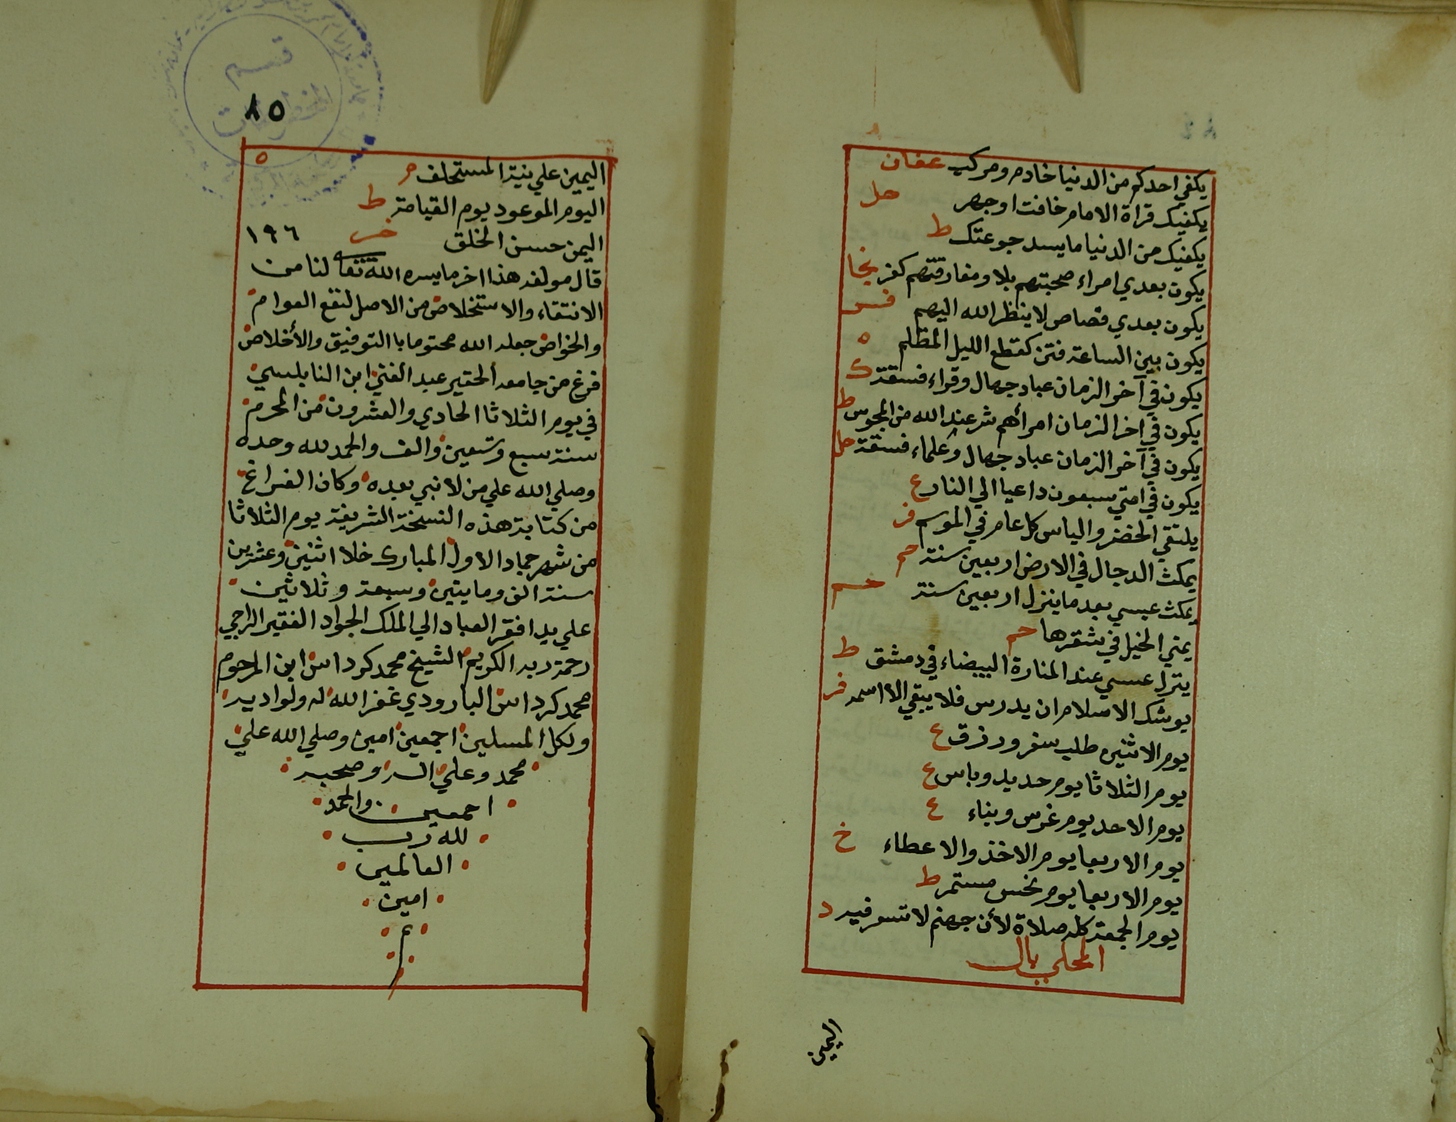 ٨٤
يكفي احدكم من الدنيا خادم ومركب عفان
يكفيك قراة الامام خافت او جهر حل
يكفيك من الدنيا ما يسد جوعتك ط
يكون بعدي امراء صحبتهم بلا ومفارقتهم كفر نجا
يكون بعدي قصاص لا ينظر الله اليهم فس
يكون بين الساعة فتن كقطع الليل المظلم ه
يكون في آخر الزمان عباد جهال وقراء فسقة ك
يكون في اخر الزمان امرائهم شر عند الله من المجوس ط
يكون في آخر الزمان عباد جهال وعلماء فسقة حل
يكون في امتي سبعون داعيا الي النار ع
يلتقي الخضر والياس كل عام في الموسم فر
يمكث الدجال في الارض اربعين سنة حم
يمكث عيسي بعد ما ينزل اربعين سنة حم
يمني الخيل في شقرها حم
ينزل عيسي عند المنارة البيضاء في دمشق ط
يوشك الاسلام ان يدرس فلا يبقي الا اسمه فر
يوم الاثنين طلب سفر ورزق ع
يوم الثلاثا يوم حديد وباس ع
يوم الاحد يوم غرس وبناء ع
يوم الاربعا يوم الاخذ والاعطاء خ
يوم الاربعا يوم نحس مستمر ط
يوم الجمعة كله صلاة لأن جهنم لا تسعر فيه د
المحلي بال
اليمين
قسم
المخطوطات
٨٥
اليمين علي نية المستحلف م ه
اليوم الموعود يوم القيامة ط
اليمن حسن الخلق خر ١٩٦
قال مولفه هذا اخر ما يسره الله تعالى لنا من
الانتقاء والاستخلاص من الاصل لنفع العوام
والخواص جعله الله مختوما بالتوفيق والأخلاص
فرغ من جامعه الحقير عبد الغني ابن النابلسي
في يوم الثلاثا الحادي والعشرون من المحرم
سنة سبع وتسعين والف والحمد لله وحده
وصلي الله علي من لا نبي بعده وكان الفراغ
من كتابة هذه النسخة الشريفة يوم الثلاثا
من شهر جماد الاول المبارك خلا اثنين وعشرين
سنة الف ومايتين وسبعة وثلاثين
علي يد افقر العباد الي الملك الجواد الفقير الراجي
رحمة ربه الكريم الشيخ محمد كرداس ابن المرحوم
محمد كرداس البارودي غفر الله له ولوالديه
ولكل المسلمين اجمعين امين وصلي الله علي
محمد وعلي اله وصحبه
اجمعين والحمد
لله رب
العالمين
امين
م